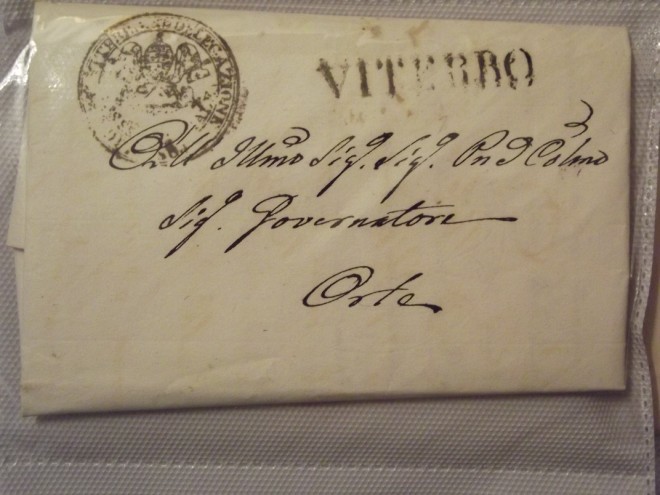 DELEGAZIONE
VITERBO
All Illmo Sig. Sig. Pne Colmo
Sig. Governatore
Orte